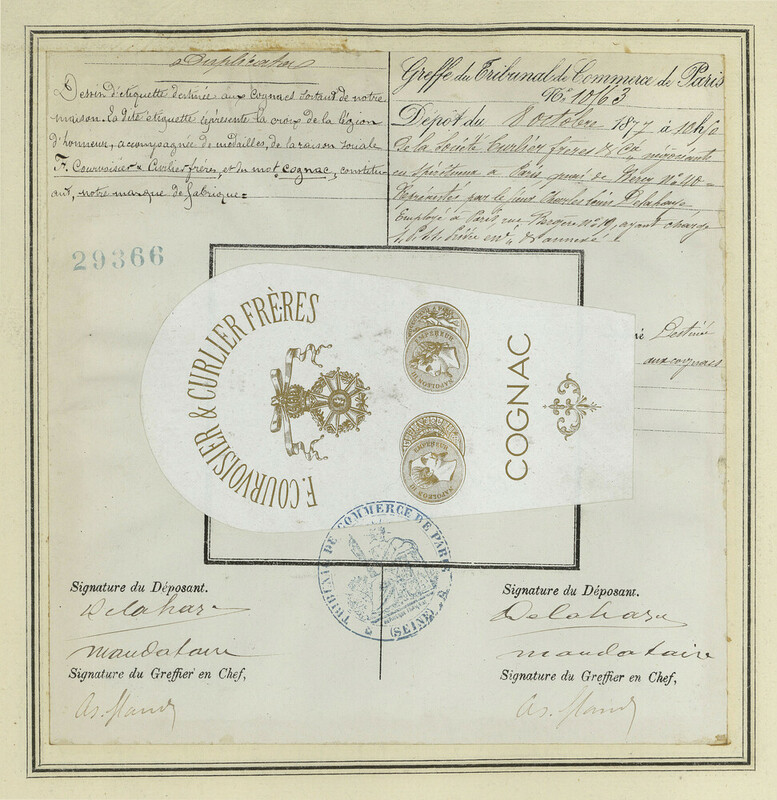 Duplicata
Dessin d'étiquette destinée aux Cognacs sortant de notre
maison. La dite étiquette représente la croix de la légion
d'honneur, accompagnée de médailles, de la raison sociale
F. Courvoisier & Curlier frères, et du mot cognac, constitu-
ant, notre marque de fabrique =
29366
Greffe du Tribunal de Commerce de Paris
No 10163
Dépôt du 8 octobre 1877 à 10h
de la Société Curlier frères & Cie négociants
en spiritueux à Paris quai de Bercy No 40
Représentés par le sieur Charles Louis Delahaye
Employé à Paris rue Bergère No 19, ayant charge
annexé
Destinée
aux cognacs
F. COURVOISIER & CURLIER FRÈRES
EMPEREUR
NAPOLEON III
EMPEREUR
NAPOLEON III
COGNAC
TRIBUNAL DE COMMERCE DE PARIS
(SEINE)
Signature du Déposant.
Delahaye
mandataire
Signature du Greffier en Chef,
Signature du Déposant.
Delahaye
mandataire
Signature du Greffier en Chef,